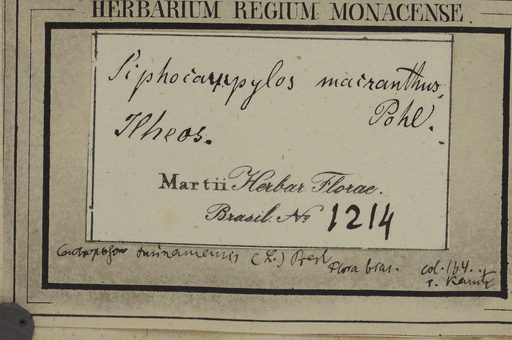 HERBARIUM REGIUM MONACENSE.
Siphocampylos macranthus,
Pohl.
Ilheos.
Martii Herbar Florae.
Brasil. No 1214
Centropogon surinamensis (L.) Presl
Flora bras. col. 144.
s. Kanitz